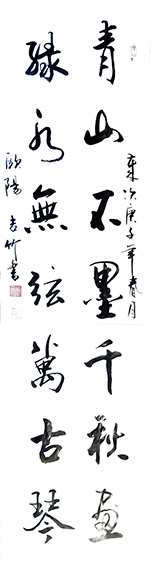 青山不墨千秋畫
歲次庚子年春月
緑水無弦萬古琴
歐陽
竹書